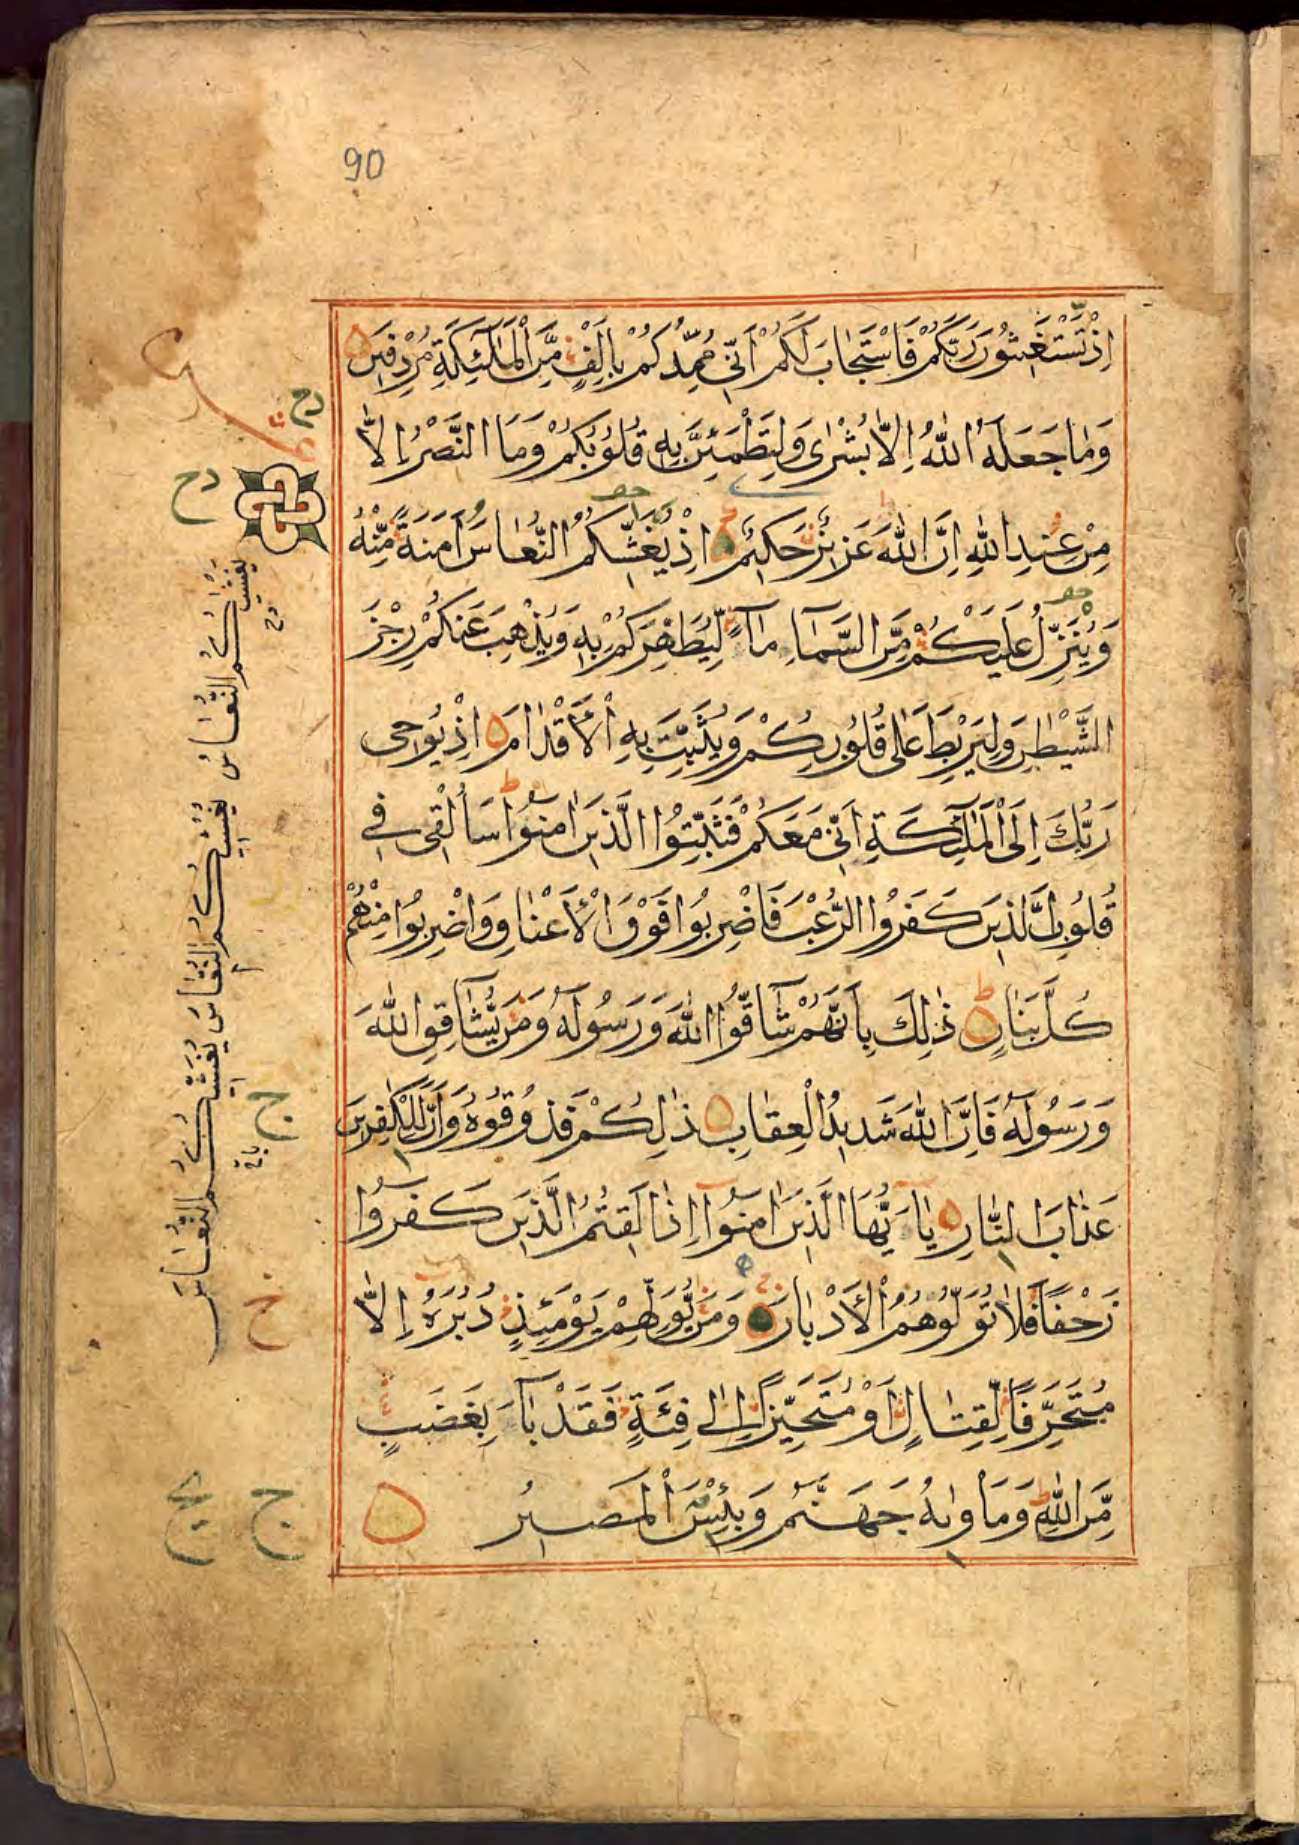 90
اِذْ تَسْتَغِيثُونَ رَبَّكُمْ فَاسْتَجَابَ لَكُمْ اَنِّى مُمِدُّكُمْ بِاَلْفٍ مِّنَ الْمَلٰٓئِكَةِ مُرْدِفِينَ
وَمَا جَعَلَهُ اللّٰهُ اِلَّا بُشْرٰى وَلِتَطْمَئِنَّ بِهٖ قُلُوبُكُمْ وَمَا النَّصْرُ اِلَّا
مِنْ عِنْدِ اللّٰهِ اِنَّ اللّٰهَ عَزِيزٌ حَكِيمٌ اِذْ يُغَشِّيكُمُ النُّعَاسَ اَمَنَةً مِّنْهُ
وَيُنَزِّلُ عَلَيْكُمْ مِّنَ السَّمَآءِ مَآءً لِّيُطَهِّرَكُمْ بِهٖ وَيُذْهِبَ عَنْكُمْ رِجْزَ
الشَّيْطٰنِ وَلِيَرْبِطَ عَلٰى قُلُوبِكُمْ وَيُثَبِّتَ بِهِ الْاَقْدَامَ اِذْ يُوحِى
رَبُّكَ اِلَى الْمَلٰٓئِكَةِ اَنِّى مَعَكُمْ فَثَبِّتُوا الَّذِينَ اٰمَنُوا سَاُلْقِى فِى
قُلُوبِ الَّذِينَ كَفَرُوا الرُّعْبَ فَاضْرِبُوا فَوْقَ الْاَعْنَاقِ وَاضْرِبُوا مِنْهُمْ
كُلَّ بَنَانٍ ذٰلِكَ بِاَنَّهُمْ شَآقُّوا اللّٰهَ وَرَسُولَهُ وَمَنْ يُّشَاقِقِ اللّٰهَ
وَرَسُولَهُ فَاِنَّ اللّٰهَ شَدِيدُ الْعِقَابِ ذٰلِكُمْ فَذُوقُوهُ وَاَنَّ لِلْكٰفِرِينَ
عَذَابَ النَّارِ يَآ اَيُّهَا الَّذِينَ اٰمَنُوٓا اِذَا لَقِيتُمُ الَّذِينَ كَفَرُوا
زَحْفًا فَلَا تُوَلُّوهُمُ الْاَدْبَارَ وَمَنْ يُّوَلِّهِمْ يَوْمَئِذٍ دُبُرَهُ اِلَّا
مُتَحَرِّفًا لِّقِتَالٍ اَوْ مُتَحَيِّزًا اِلٰى فِئَةٍ فَقَدْ بَآءَ بِغَضَبٍ
مِّنَ اللّٰهِ وَمَاْوٰيهُ جَهَنَّمُ وَبِئْسَ الْمَصِيرُ
يَغْشٰيكُمُ النُّعَاسُ
يُغْشِيكُمُ النُّعَاسَ
يُغَشِّيكُمُ النُّعَاسَ